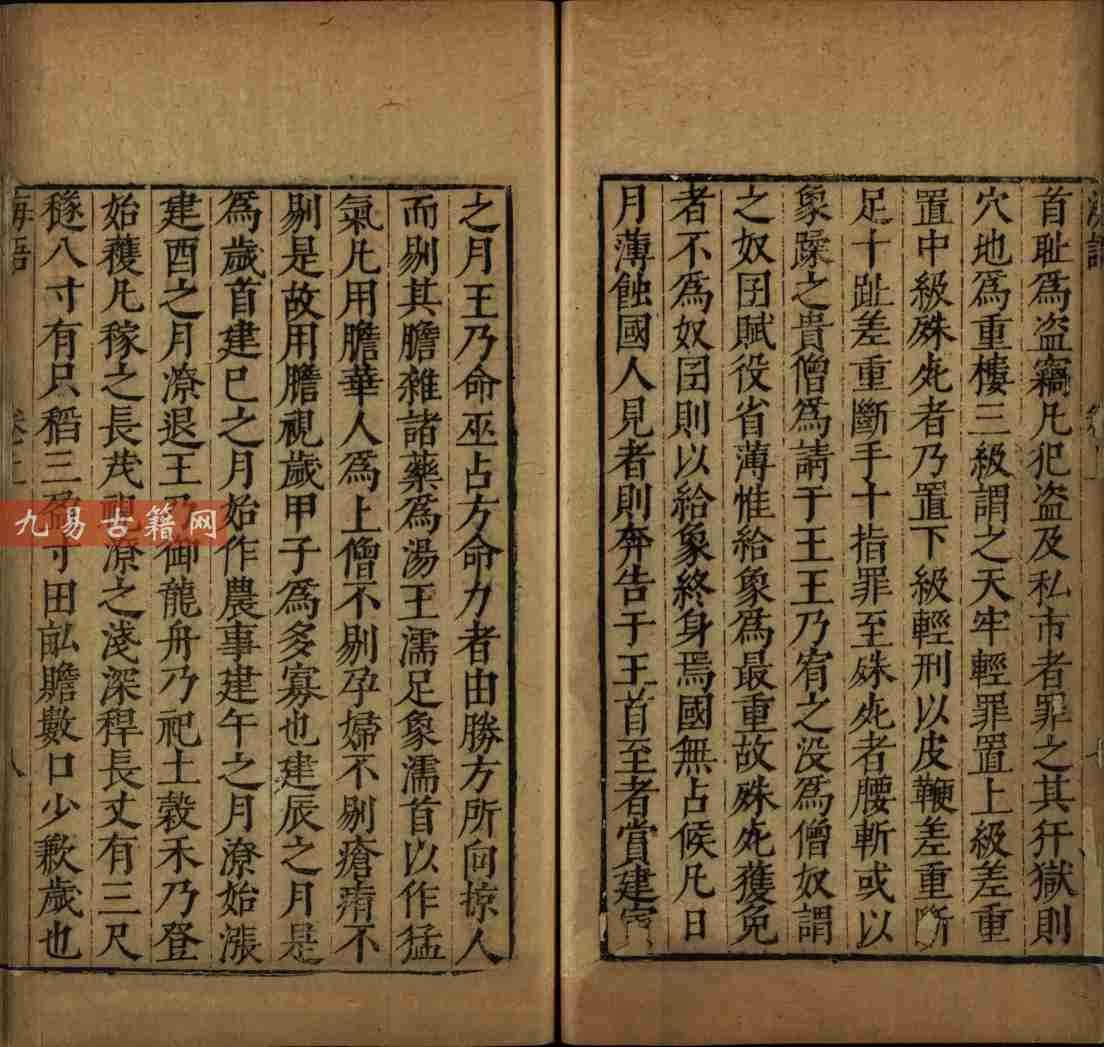 首耻爲盗竊凡犯盗及私市者罪之其犴獄則
穴地爲重樓三級謂之天牢輕罪置上級差重
置中級殊死者乃置下級輕刑以皮鞭差重斷
足十趾差重斷手十指罪至殊死者腰斬或以
象躁之貴僧爲請于王王乃宥之没爲僧奴謂
之奴囝賦役省薄惟給象爲最重故殊死獲免
者不爲奴囝則以給象終身焉國無占候凡日
月薄蝕國人見者則奔告于王首至者賞建寅
之月王乃命巫占方命力者由勝方所向掠人
而剔其膽雜諸藥爲湯王濡足象濡首以作猛
氣凡用膽華人爲上僧不剔孕婦不剔瘡痏不
剔是故用膽視歲甲子爲多寡也建辰之月是
爲歲首建巳之月始作農事建午之月潦始漲
建酉之月潦退王乃御龍舟乃祀土榖禾乃登
始穫凡稼之長茂視潦之淺深稈長丈有三尺
穟八寸有只稻三盈寸田畆贍數口少歉歲也
海語 卷上 八
九易古籍网